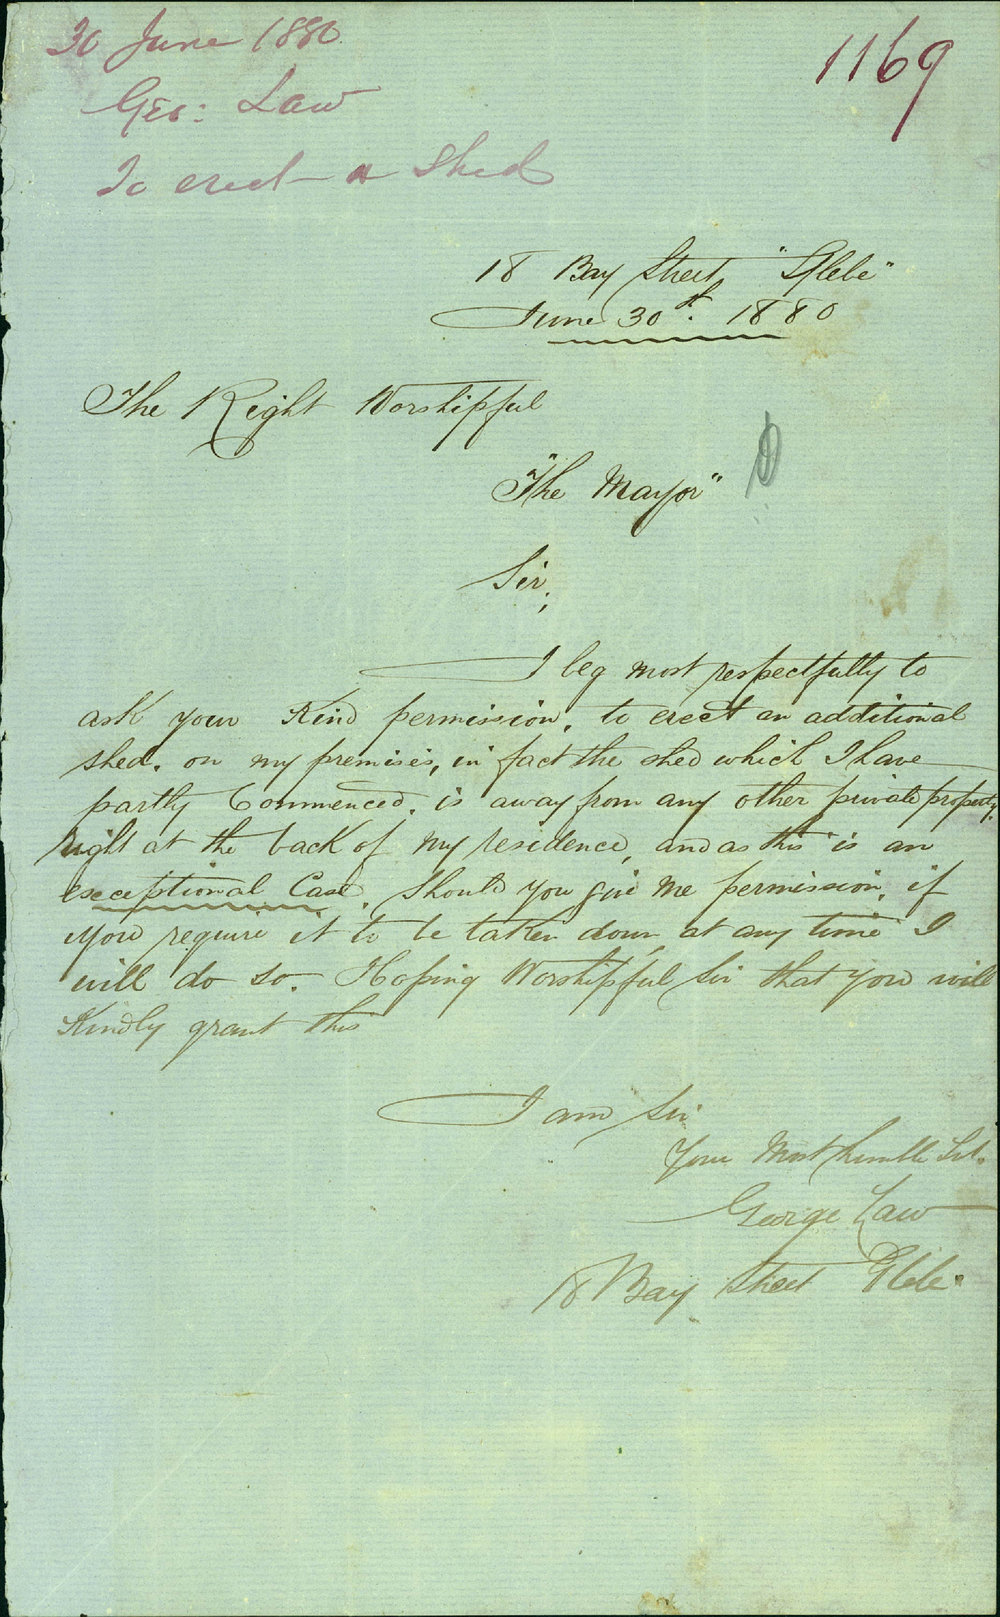 30 June 1880
1169
Geo: Law
To erect a Shed
18 Bay Street, "Glebe"
June 30th. 1880
The Right Worshipful
"The Mayor"
Sir,
I beg most respectfully to
ask your Kind permission, to erect an additional
shed. on my premises, in fact the shed which I have
partly Commenced, is away from any other private property,
right at the back of my residence, and as this is an
exceptional Case. Should you give me permission, if
you require it to be taken down, at any time I
will do so. Hoping Worshipful Sir that you will
Kindly grant this
I am Sir
Your Most humble Svt.
George Law
18 Bay Street Glebe.